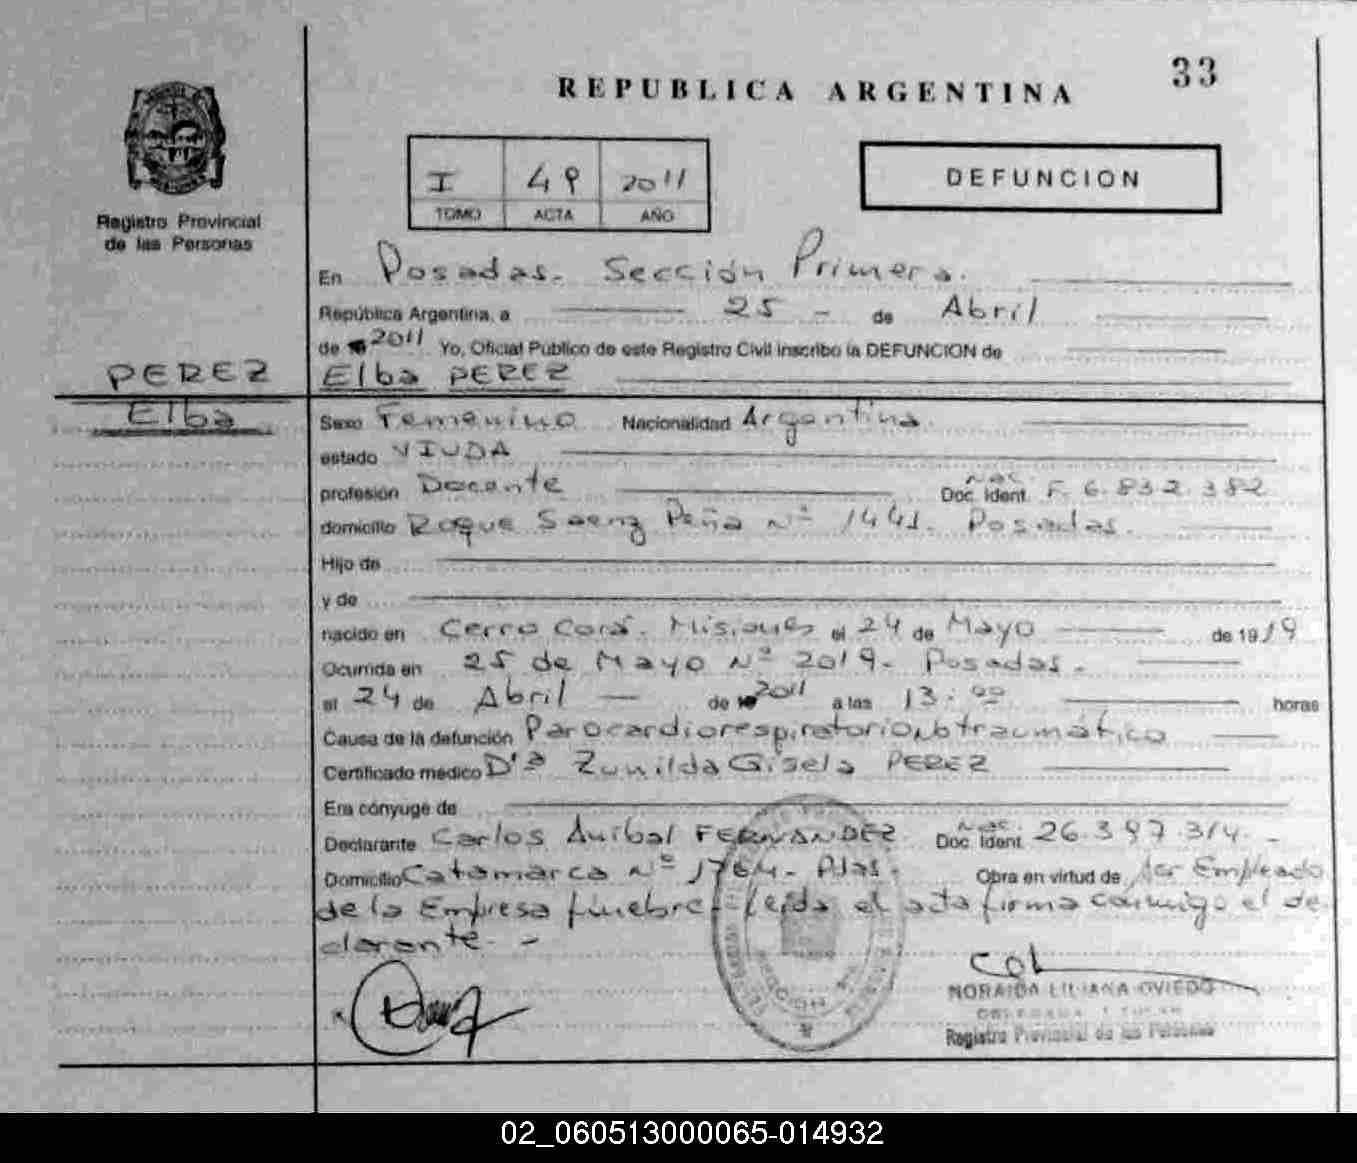 33
REPUBLICA ARGENTINA
Registro Provincial
de las Personas
I 49 2011
TOMO ACTA AÑO
DEFUNCION
En Posadas. Sección Primera.
República Argentina, a 25 - de Abril
de 2011 Yo, Oficial Público de este Registro Civil inscribo la DEFUNCION de
PEREZ
Elba
Elba PEREZ
Sexo Femenino Nacionalidad Argentina.
estado VIUDA
profesión Docente Doc. Nac. Ident. F. 6.832.382
domicilio Roque Saenz Peña Nº 1441. Posadas.
Hijo de
y de
nacido en Cerro Corá. Misiones el 24 de Mayo de 1919
Ocurrida en 25 de Mayo Nº 2019. Posadas.
el 24 de Abril de 2011 a las 13:00 horas
Causa de la defunción Parocardiorespiratorio
Certificado médico Drª Zunilda Gisela PEREZ
Era cónyuge de
Declarante Carlos Anibal FERNANDEZ Doc. Nac. Ident. 26.397.314.-
Domicilio Catamarca Nº 1764. Pdas. Obra en virtud de ser Empleado
de la Empresa fúnebre. Leída el acta firma conmigo el de
clarante. -
NORAIDA LILIANA OVIEDO
Registro Provincial de las Personas
02_060513000065-014932